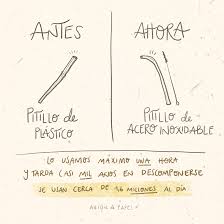 ANTES
AHORA
PITILLO DE
PLÁSTICO
PITILLO DE
ACERO INOXIDABLE
LO USAMOS MÁXIMO UNA HORA
Y TARDA CASI MIL AÑOS EN DESCOMPONERSE
SE USAN CERCA DE 16 MILLONES AL DÍA